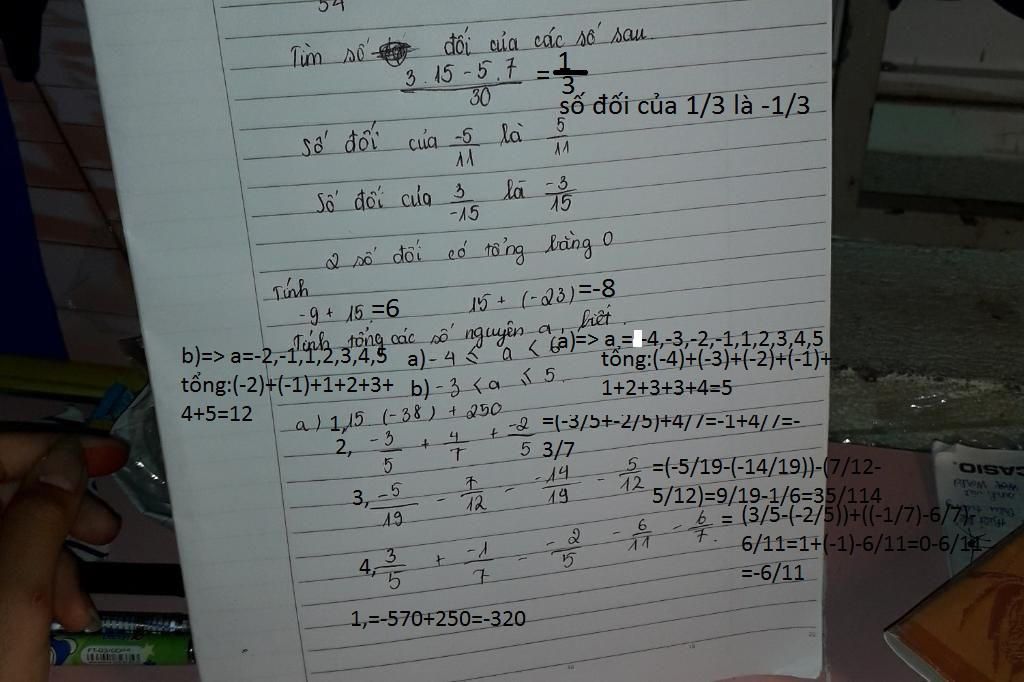 54
Tìm số đối của các số sau.
3.15-5.7 / 30 = 1/3
số đối của 1/3 là -1/3
Số đối của -5/11 là 5/11
Số đối của 3/-15 là -3/15
2 số đối có tổng bằng 0
Tính
-9+15=6 15+(-23)=-8
Tính tổng các số nguyên a, biết.
a)-4 ≤ a < 6 (a)=> a =-4,-3,-2,-1,1,2,3,4,5
tổng:(-4)+(-3)+(-2)+(-1)+
1+2+3+3+4=5
b)-3 < a ≤ 5. b)=> a=-2,-1,1,2,3,4,5
tổng:(-2)+(-1)+1+2+3+
4+5=12
a) 1,15.(-38)+250
2, -3/5 + 4/7 + -2/5 =(-3/5+-2/5)+4/7=-1+4/7=-
3/7
3, -5/19 - 7/12 - -14/19 - 5/12 =(-5/19-(-14/19))-(7/12-
5/12)=9/19-1/6=35/114
4, 3/5 + -1/7 - -2/5 - 6/11 - 6/7. = (3/5-(-2/5))+((-1/7)-6/7)-
6/11=1+(-1)-6/11=0-6/11
=-6/11
1,=-570+250=-320
CASIO.